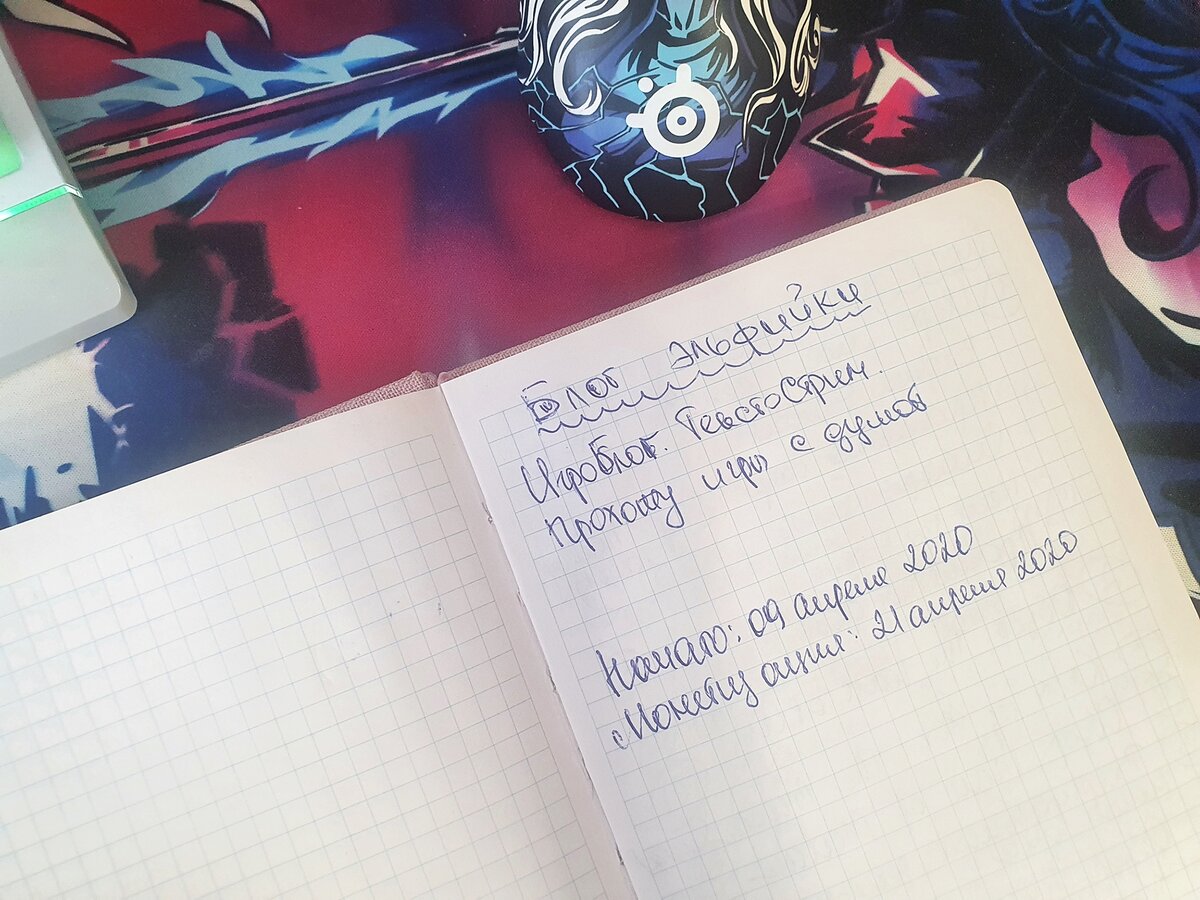 Блог Эльфийки
Игроблог. ТекстоСтрим.
Прохожу игры с душой
Начало: 09 апреля 2020
Монетизация: 21 апреля 2020